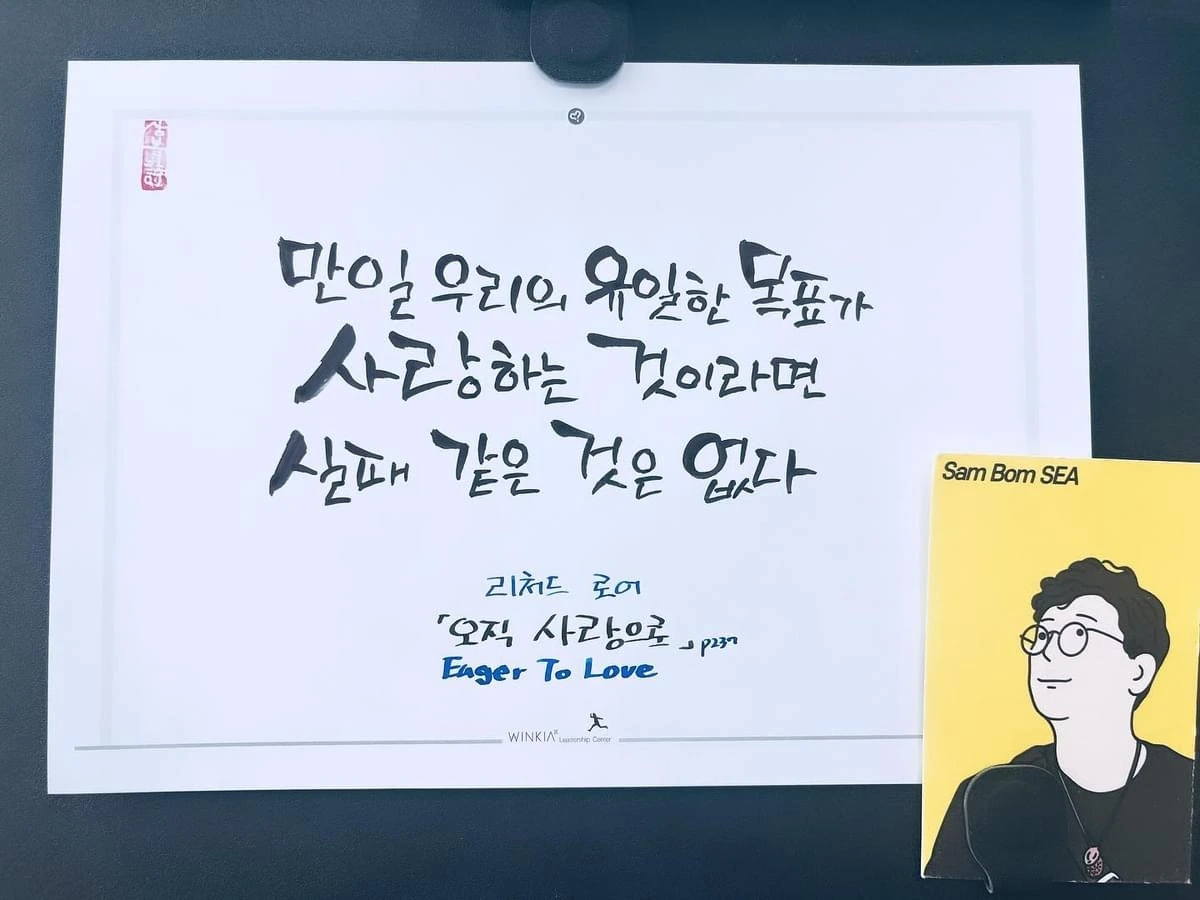 만일 우리의 유일한 목표가
사랑하는 것이라면
실패 같은 것은 없다
리처드 로어
「오직 사랑으로」 p237
Eager To Love
WINKIA Leadership Center
Sam Bom SEA